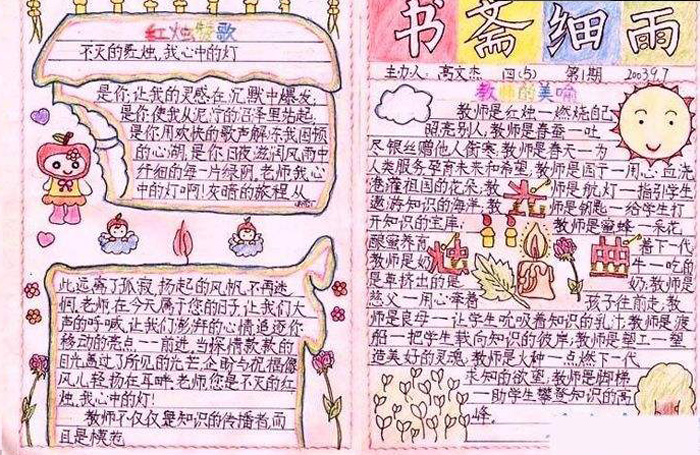 红烛颂歌
不灭的红烛,我心中的灯
是你,让我的灵感在沉默中爆发;
是你,使我从泥泞的沼泽里站起,
是你,用欢快的歌声解冻我困顿
的心湖,是你,日夜滋润风雨中
纤细的每一片绿荫,老师,我心
中的灯啊!灰暗的旅程,从
此远离了孤寂,扬起的风帆,不再迷
惘,老师,在今天属于您的日子,让我们大
声的呐喊,让我们澎湃的心情追逐你
移动的亮点--前进,当深情款款的
目光盖过了所见的光芒,企盼与祝福像
风儿轻扬在耳畔,老师,您是不灭的红
烛,我心中的灯!
教师不仅仅是知识的传播者,而
且是模范
书斋细雨
主办人:高文杰 四(5) 第1期 2003.9.7
教师的美喻
教师是红烛一燃烧自己
照亮别人,教师是春蚕一吐
尽银丝赠他人御寒,教师是春天一为
人类服务孕育未来和希望,教师是园丁一用心血浇
灌祖国的花朵,教师是航灯一指引学生
遨游知识的海洋,教师是钥匙一给学生打
开知识的宝库,教师是蜜蜂一采花
酿蜜养育着下一代
教师是奶牛一吃的
是草挤出的是奶,教师是
慈父一用心牵着孩子往前走,教
师是良母一让学生吮吸着知识的乳汁,教师是渡
船一把学生载向知识的彼岸,教师是塑工一塑
造美好的灵魂,教师是火种一点燃下一代
求知的欲望,教师是脚梯
一助学生攀登知识的高
峰。
光
烛
典